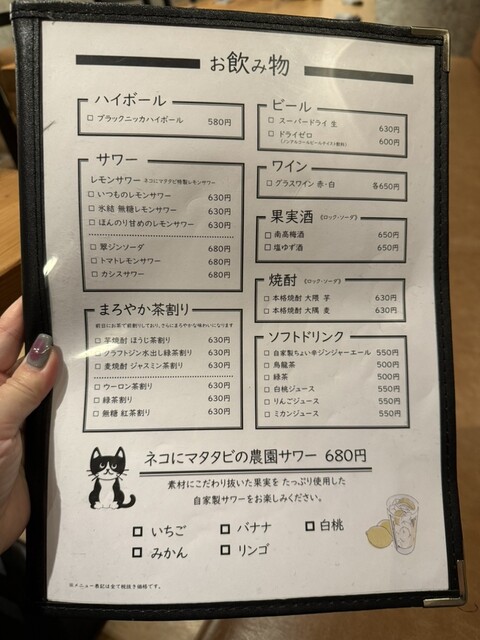 お飲み物
ハイボール
□ ブラックニッカハイボール 580円
サワー
レモンサワー ネコにマタタビ特製レモンサワー
□ いつものレモンサワー 630円
□ 氷結 無糖レモンサワー 630円
□ ほんのり甘めのレモンサワー 630円
□ 翠ジンソーダ 680円
□ トマトレモンサワー 680円
□ カシスサワー 680円
まろやか茶割り
前日にお茶で前割りしており、さらにまろやかな味わいになります
□ 芋焼酎 ほうじ茶割り 630円
□ クラフトジン水出し緑茶割り 630円
□ 麦焼酎 ジャスミン茶割り 630円
□ ウーロン茶割り 630円
□ 緑茶割り 630円
□ 無糖 紅茶割り 630円
ビール
□ スーパードライ 生 630円
□ ドライゼロ 600円
(ノンアルコールビールテイスト飲料)
ワイン
□ グラスワイン 赤・白 各650円
果実酒 《ロック・ソーダ》
□ 南高梅酒 650円
□ 塩ゆず酒 650円
焼酎 《ロック・ソーダ》
□ 本格焼酎 大隅 芋 630円
□ 本格焼酎 大隅 麦 630円
ソフトドリンク
□ 自家製ちょい辛ジンジャーエール 550円
□ 烏龍茶 500円
□ 緑茶 500円
□ 白桃ジュース 550円
□ りんごジュース 550円
□ ミカンジュース 550円
ネコにマタタビの農園サワー 680円
素材にこだわり抜いた果実を たっぷり使用した
自家製サワーをお楽しみください。
□ いちご □ バナナ □ 白桃
□ みかん □ リンゴ
※メニュー表記は全て税抜き価格です。